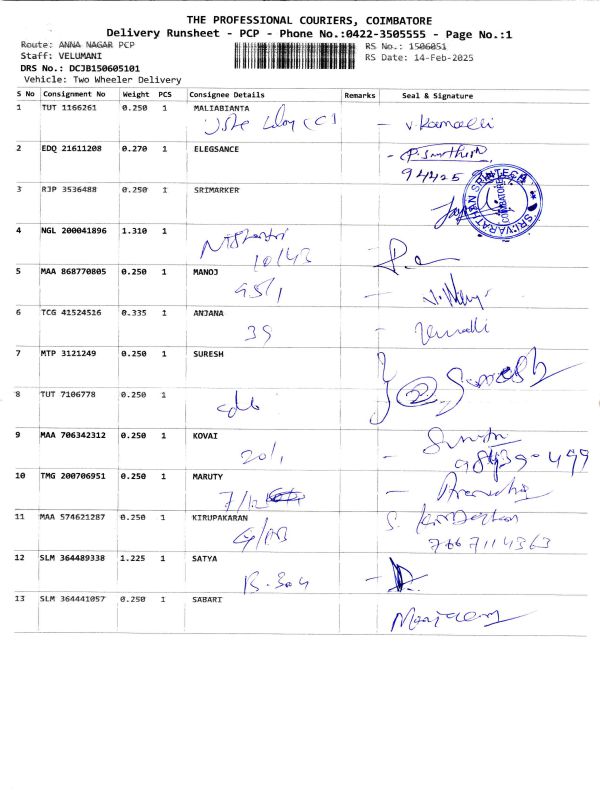 THE PROFESSIONAL COURIERS, COIMBATORE
Delivery Runsheet - PCP - Phone No.:0422-3505555 - Page No.:1
Route: ANNA NAGAR PCP
RS No.: 1506051
Staff: VELUMANI
RS Date: 14-Feb-2025
DRS No.: DCJB150605101
Vehicle: Two Wheeler Delivery
S No Consignment No Weight PCS Consignee Details Remarks Seal & Signature
1 TUT 1166261 0.250 1 MALIABIANTA
2 EDQ 21611208 0.270 1 ELEGSANCE
94425
3 RJP 3536488 0.250 1 SRIMARKER
SRI VARATHAN SRINTECH
COIMBATORE
4 NGL 200041896 1.310 1
10/43
5 MAA 868770805 0.250 1 MANOJ
95/1
6 TCG 41524516 0.335 1 ANJANA
39
7 MTP 3121249 0.250 1 SURESH
2 Suresh
8 TUT 7106778 0.250 1
9 MAA 706342312 0.250 1 KOVAI
20/1
10 TMG 200706951 0.250 1 MARUTY
11 MAA 574621287 0.250 1 KIRUPAKARAN
7667114363
12 SLM 364489338 1.225 1 SATYA
13 SLM 364441057 0.250 1 SABARI